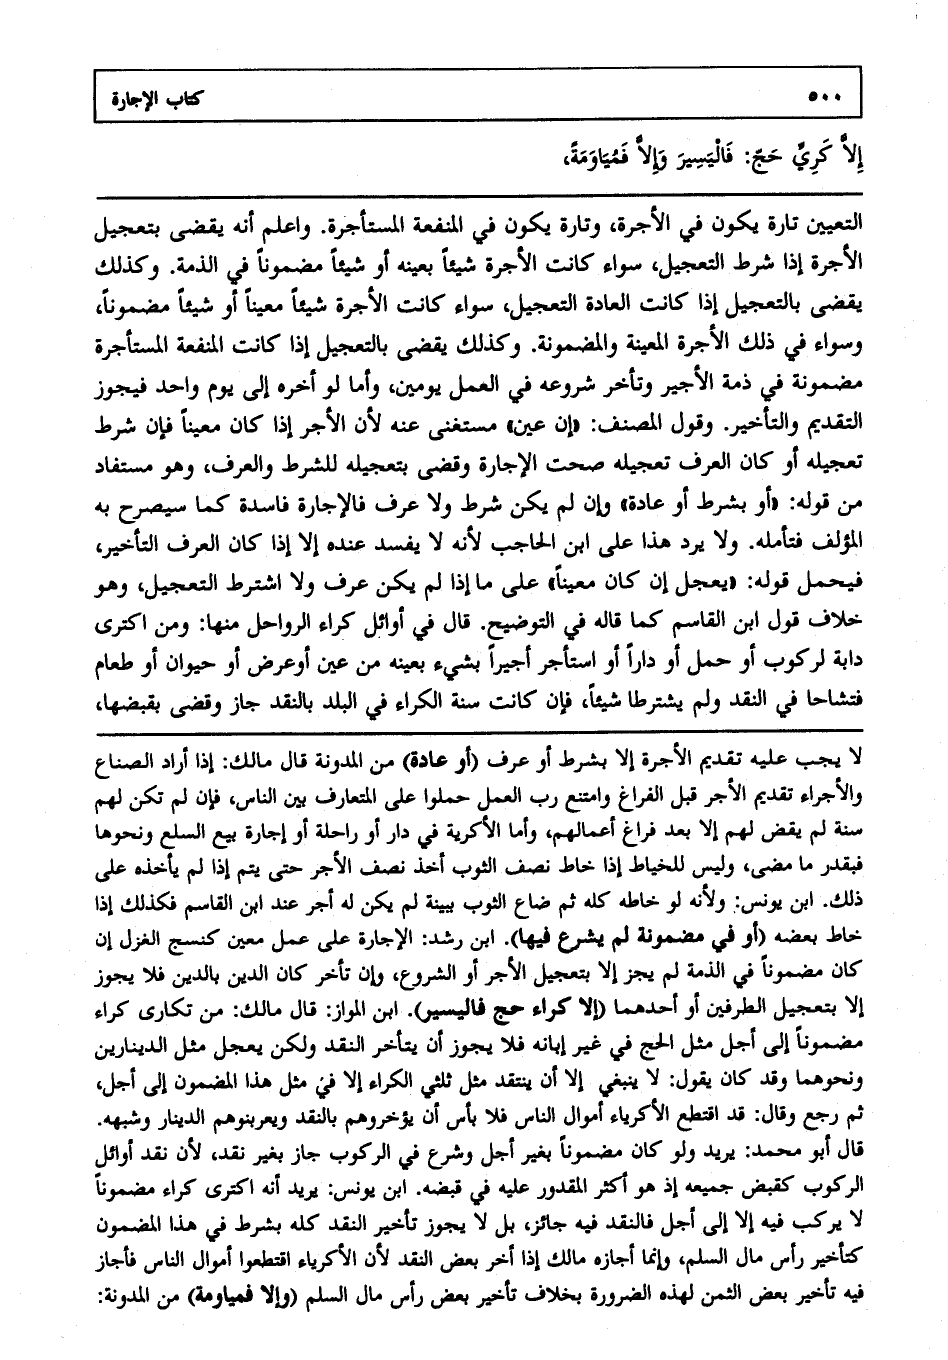 ٥٠٠ كتاب الإجارة
إِلاَّ كَرِيِّ حَجّ: فَالْيَسِيرَ وَإِلاَّ فَمُيَاوَمَةً،
التعيين تارة يكون في الأجرة، وتارة يكون في المنفعة المستأجرة. واعلم أنه يقضى بتعجيل
الأجرة إذا شرط التعجيل، سواء كانت الأجرة شيئاً بعينه أو شيئاً مضموناً في الذمة. وكذلك
يقضى بالتعجيل إذا كانت العادة التعجيل، سواء كانت الأجرة شيئاً معيناً أو شيئاً مضموناً،
وسواء في ذلك الأجرة المعينة والمضمونة. وكذلك يقضى بالتعجيل إذا كانت المنفعة المستأجرة
مضمونة في ذمة الأجير وتأخر شروعه في العمل يومين، وأما لو أخره إلى يوم واحد فيجوز
التقديم والتأخير. وقول المصنف: «إن عين» مستغنى عنه لأن الأجر إذا كان معيناً فإن شرط
تعجيله أو كان العرف تعجيله صحت الإجارة وقضى بتعجيله للشرط والعرف، وهو مستفاد
من قوله: «أو بشرط أو عادة» وإن لم يكن شرط ولا عرف فالإجارة فاسدة كما سيصرح به
المؤلف فتأمله. ولا يرد هذا على ابن الحاجب لأنه لا يفسد عنده إلا إذا كان العرف التأخير،
فيحمل قوله: «يعجل إن كان معيناً» على ما إذا لم يكن عرف ولا اشترط التعجيل، وهو
خلاف قول ابن القاسم كما قاله في التوضيح. قال في أوائل كراء الرواحل منها: ومن اكترى
دابة لركوب أو حمل أو داراً أو استأجر أجيراً بشيء بعينه من عين أوعرض أو حيوان أو طعام
فتشاحا في النقد ولم يشترطا شيئاً، فإن كانت سنة الكراء في البلد بالنقد جاز وقضى بقبضها،
لا يجب عليه تقديم الأجرة إلا بشرط أو عرف (أو عادة) من المدونة قال مالك: إذا أراد الصناع
والأجراء تقديم الأجر قبل الفراغ وامتنع رب العمل حملوا على المتعارف بين الناس، فإن لم تكن لهم
سنة لم يقض لهم إلا بعد فراغ أعمالهم، وأما الأكرية في دار أو راحلة أو إجارة بيع السلع ونحوها
فبقدر ما مضى، وليس للخياط إذا خاط نصف الثوب أخذ نصف الأجر حتى يتم إذا لم يأخذه على
ذلك. ابن يونس: ولأنه لو خاطه كله ثم ضاع الثوب ببينة لم يكن له أجر عند ابن القاسم فكذلك إذا
خاط بعضه (أو في مضمونة لم يشرع فيها). ابن رشد: الإجارة على عمل معين كنسج الغزل إن
كان مضموناً في الذمة لم يجز إلا بتعجيل الأجر أو الشروع، وإن تأخر كان الدين بالدين فلا يجوز
إلا بتعجيل الطرفين أو أحدهما (إلا كراء حج فاليسير). ابن المواز: قال مالك: من تكارى كراء
مضموناً إلى أجل مثل الحج في غير إبانه فلا يجوز أن يتأخر النقد ولكن يعجل مثل الدينارين
ونحوهما وقد كان يقول: لا ينبغي إلا أن ينتقد مثل ثلثي الكراء إلا في مثل هذا المضمون إلى أجل،
ثم رجع وقال: قد اقتطع الأكرياء أموال الناس فلا بأس أن يؤخروهم بالنقد ويعربنوهم الدينار وشبهه.
قال أبو محمد: يريد ولو كان مضموناً بغير أجل وشرع في الركوب جاز بغير نقد، لأن نقد أوائل
الركوب كقبض جميعه إذ هو أكثر المقدور عليه في قبضه. ابن يونس: يريد أنه اكترى كراء مضموناً
لا يركب فيه إلا إلى أجل فالنقد فيه جائز، بل لا يجوز تأخير النقد كله بشرط في هذا المضمون
كتأخير رأس مال السلم، وإنما أجازه مالك إذا أخر بعض النقد لأن الأكرياء اقتطعوا أموال الناس فأجاز
فيه تأخير بعض الثمن لهذه الضرورة بخلاف تأخير بعض رأس مال السلم (وإلا فمياومة) من المدونة: